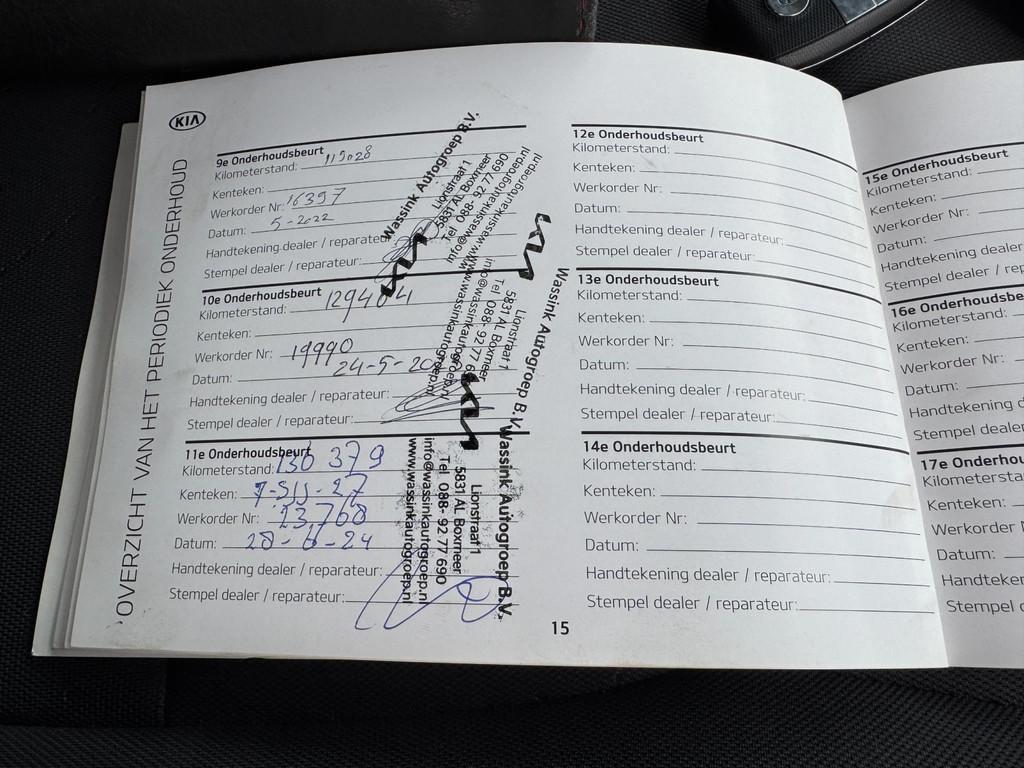 KIA
OVERZICHT VAN HET PERIODIEK ONDERHOUD
9e Onderhoudsbeurt
Kilometerstand: 115028
Kenteken:
Werkorder Nr: 16397
Datum: 5-2022
Handtekening dealer / reparateur
Stempel dealer / reparateur:
KIA
Wassink Autogroep B.V.
Lionstraat 1
5831 AL Boxmeer
Tel 088- 92 77 690
info@wassinkautogroep.nl
www.wassinkautogroep.nl
10e Onderhoudsbeurt
Kilometerstand: 129404
Kenteken:
Werkorder Nr: 19990
Datum: 24-5-20
Handtekening dealer / reparateur:
Stempel dealer / reparateur:
KIA
Wassink Autogroep B.V.
Lionstraat 1
5831 AL Boxmeer
Tel 088- 92 77 6
info@wassinkautogroep.nl
www.wassinkautogroep.nl
11e Onderhoudsbeurt
Kilometerstand: 130 379
Kenteken:
Werkorder Nr: 23768
Datum: 28-6-24
Handtekening dealer / reparateur:
Stempel dealer / reparateur:
KIA
Wassink Autogroep B.V.
Lionstraat 1
5831 AL Boxmeer
Tel 088- 92 77 690
info@wassinkautogroep.nl
www.wassinkautogroep.nl
12e Onderhoudsbeurt
Kilometerstand:
Kenteken:
Werkorder Nr:
Datum:
Handtekening dealer / reparateur:
Stempel dealer / reparateur:
13e Onderhoudsbeurt
Kilometerstand:
Kenteken:
Werkorder Nr:
Datum:
Handtekening dealer / reparateur:
Stempel dealer / reparateur:
14e Onderhoudsbeurt
Kilometerstand:
Kenteken:
Werkorder Nr:
Datum:
Handtekening dealer / reparateur:
Stempel dealer / reparateur:
15
15e Onderhoudsbeurt
Kilometerstand:
Kenteken:
Werkorder Nr:
Datum:
Handtekening dealer
Stempel dealer / rep
16e Onderhoudsbe
Kilometerstand:
Kenteken:
Werkorder Nr:
Datum:
Handtekening d
Stempel dealer
17e Onderhou
Kilometersta
Kenteken:
Werkorder N
Datum:
Handteken
Stempel d